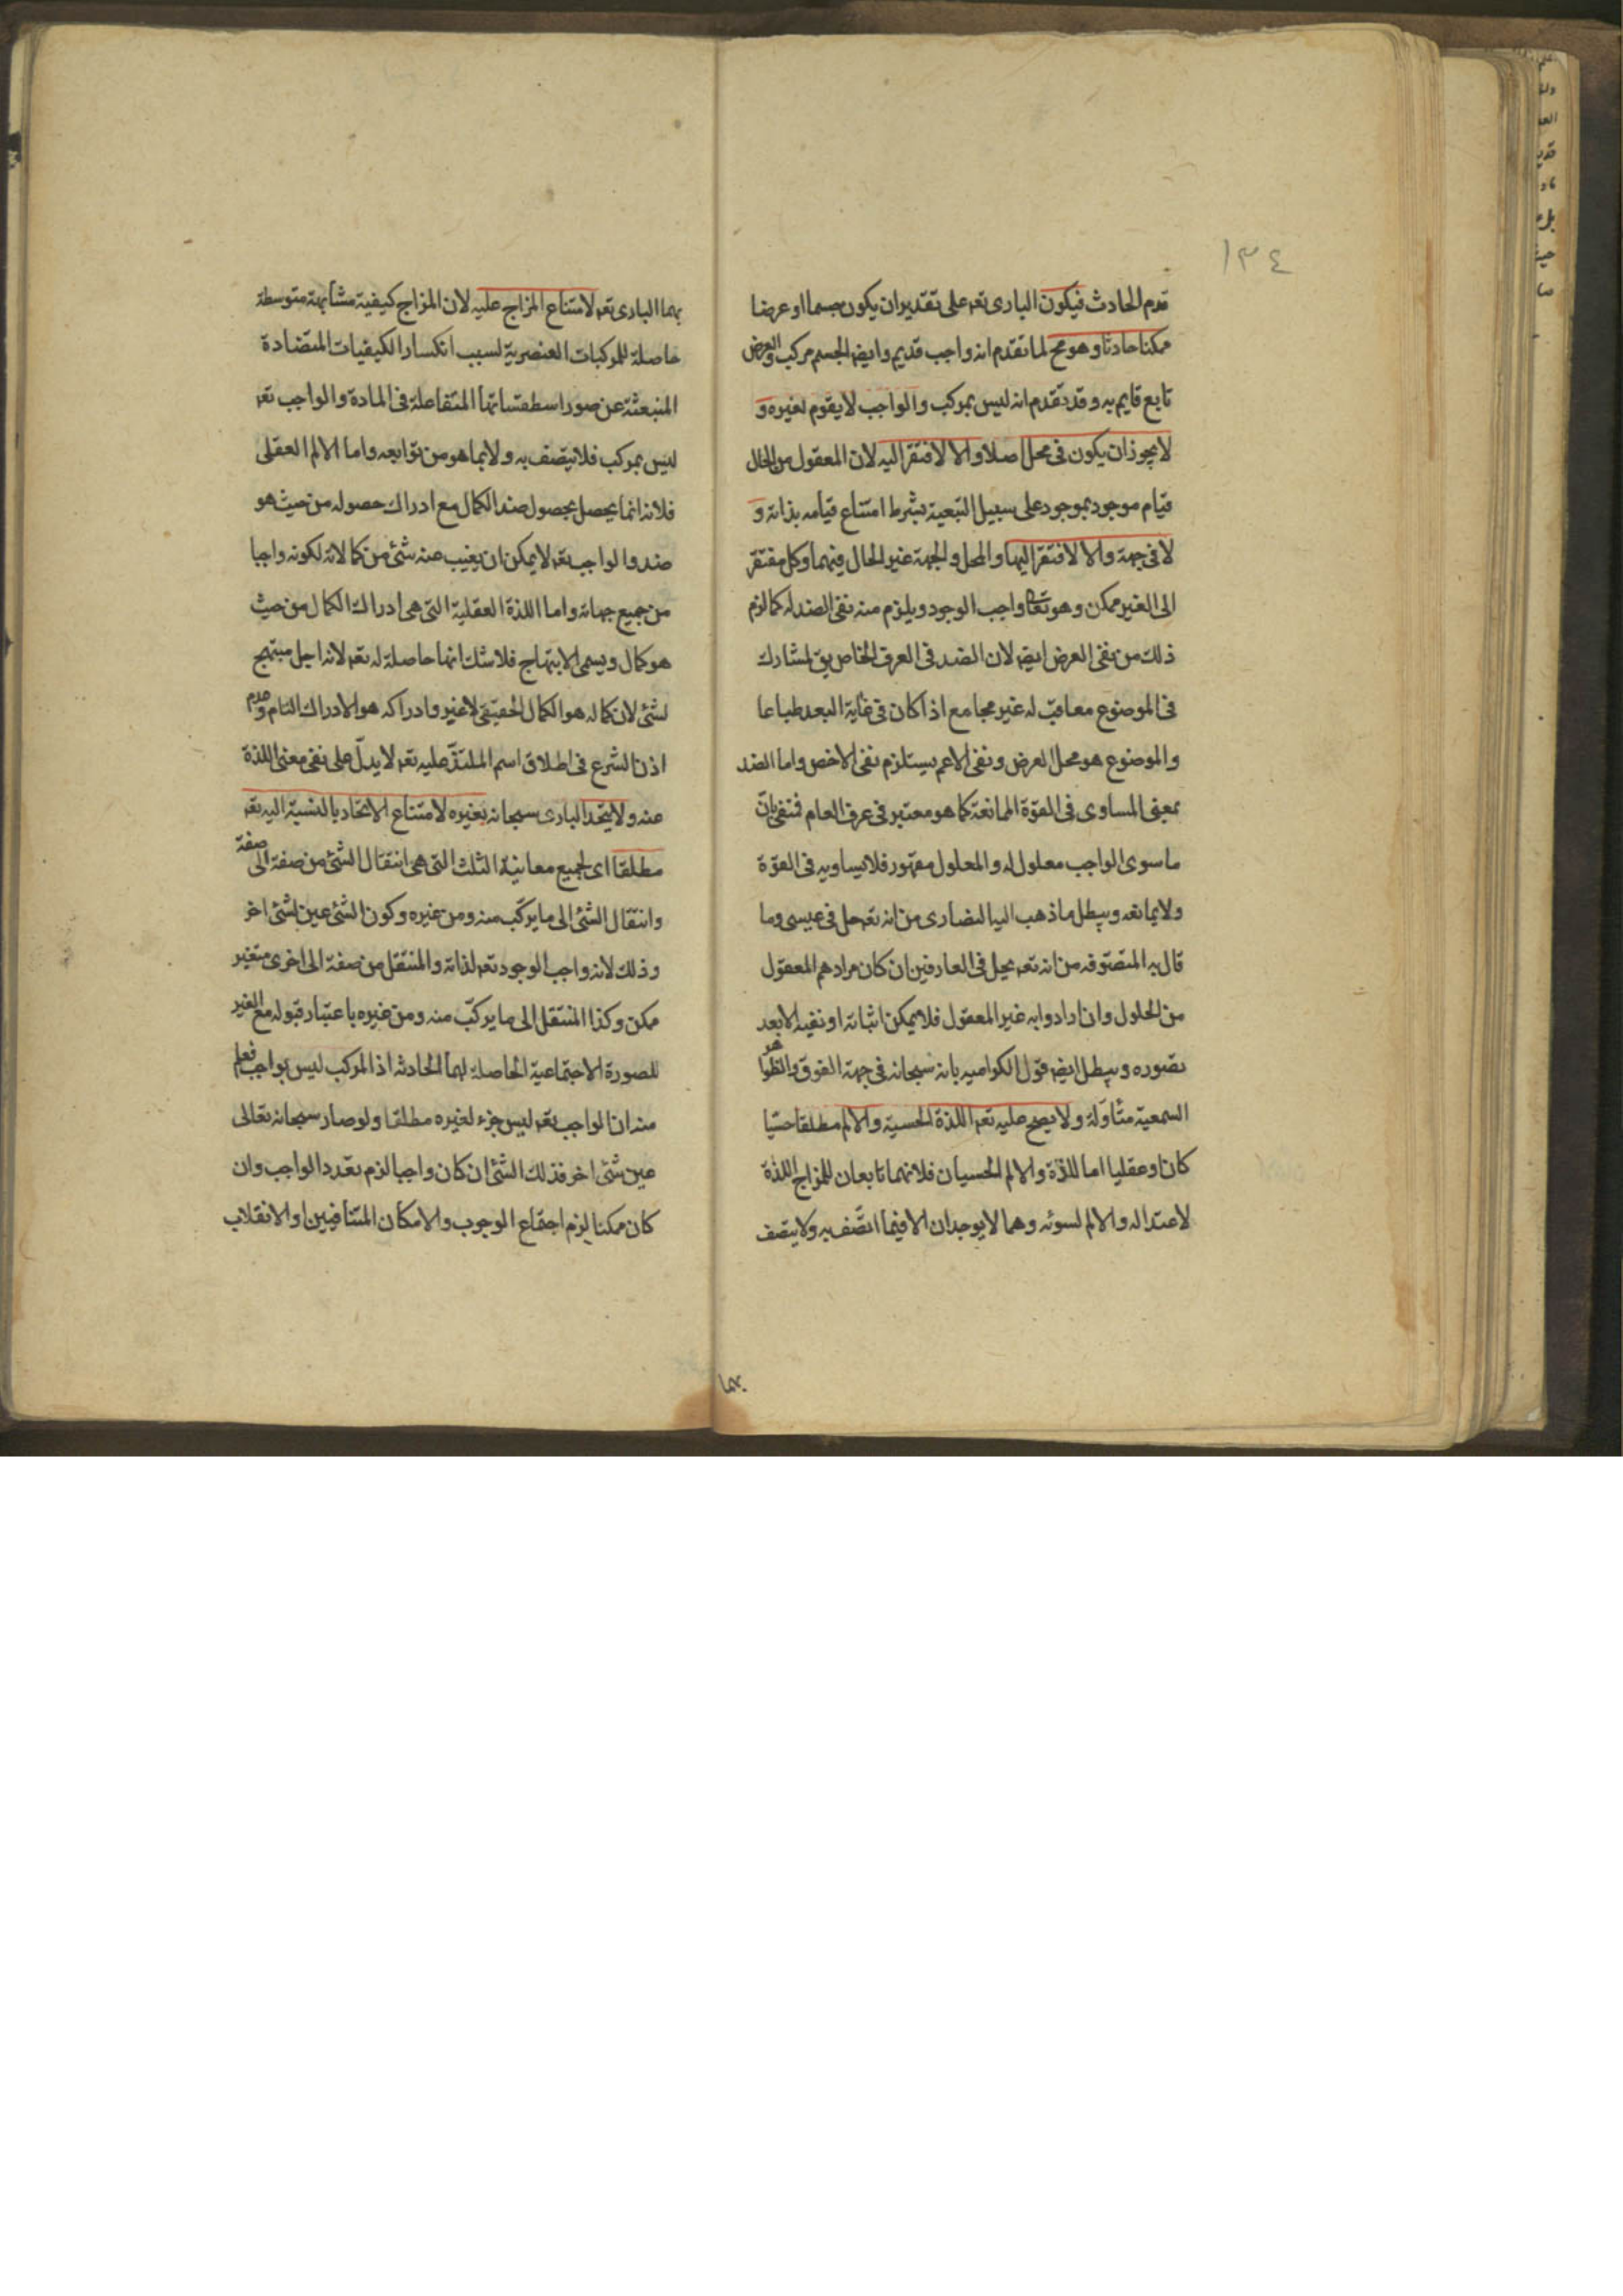 ١٣٤
قدم الحادث فيكون البارى تعه على تقدير ان يكون جسما او عرضا
ممكنا حادثا وهو مح لما تقدم انه واجب قديم وايضه الجسم مركب والعرض
تابع قايم به وقد تقدم انه ليس بمركب والواجب لا يقوم لغيره و
لا يجوز ان يكون فى محل اصلا والا لافتقر اليه لان المعقول من الحال
قيام موجود بموجود على سبيل التبعية بشرط امتناع قيامه بذاته و
لا فى جهة والا لافتقر اليها والمحل والجهة غير الحال فيهما وكل مفتقر
الى الغير ممكن وهو تعالى واجب الوجود ويلزم منه نفى الضد له كما لزم
ذلك من نفى العرض ايضه لان الضد فى العرف الخاص يق لمشارك
فى الموضوع معاقب له غير مجامع اذا كان فى غاية البعد طباعا
والموضوع هو محل العرض ونفى الاعم يستلزم نفى الاخص واما الضد
بمعنى المساوى فى القوة الممانعة كما هو معتبر فى عرف العام فتنفى بان
ما سوى الواجب معلول له والمعلول مقهور فلا يساويه فى القوة
ولا يمانعه ويبطل ما ذهب اليه النصارى من انه تعه حل فى عيسى وما
قال به المتصوفه من انه تعه يحل فى العارفين ان كان مرادهم المعقول
من الحلول وان ارادوا به غير المعقول فلا يمكن اثباته او نفيه الا بعد
تصوره ويبطل ايضه قول الكراميه بانه سبحانه فى جهة الفوق والظواهر
السمعية متأولة ولا يصح عليه تعه اللذة الحسية والالم مطلقا حسّيا
كان او عقليا اما اللذّة والالم الحسيان فلانهما تابعان للمزاج اللذة
لاعتداله والالم لسوئه وهما لا يوجدان الا فيما اتصّف به ولا يتصف
بهما
بهما البارى تعه لامتناع المزاج عليه لان المزاج كيفية متشابهة متوسطة
حاصلة للمركبات العنصرية لسبب انكسار الكيفيات المتضادة
المنبعثة عن صور اسطقساتها المتفاعلة فى المادة والواجب تعه
ليس بمركب فلا يتصف به ولا بما هو من توابعه واما الالم العقلى
فلانه انما يحصل بحصول ضد الكمال مع ادراك حصوله من حيث هو
ضد والواجب تعه لا يمكن ان يغيب عنه شئ من كمالاته لكونه واجبا
من جميع جهاته واما اللذة العقلية التى هى ادراك الكمال من حيث
هو كمال ويسمى الابتهاج فلا شك انها حاصلة له تعه لانه اجل مبتهج
لشئ لان كماله هو الكمال الحقيقى لا غير وادراكه هو الادراك التام وعدم
اذن الشرع فى اطلاق اسم الملتذّ عليه تعه لا يدلّ على نفى معنى اللذة
عنه ولا يتحد البارى سبحانه بغيره لامتناع الاتحاد بالنسبة اليه تعه
مطلقا اى لجميع معانيه الثلث التى هى انتقال الشئ من صفة الى صفة
وانتقال الشئ الى ما يركّب منه ومن غيره وكون الشئ عين شئ اخر
وذلك لانه واجب الوجود تعه لذاته والمنتقل من صفة الى اخرى متغير
ممكن وكذا المنتقل الى ما يركّب منه ومن غيره باعتبار قبوله مع الغير
للصورة الاجتماعية الحاصلة لهما الحادثه اذ المركب ليس بواجب فعلم
منه ان الواجب تعه ليس جزء لغيره مطلقا ولو صار سبحانه تعالى
عين شئ اخر فذلك الشئ ان كان واجبا لزم تعدد الواجب وان
كان ممكنا لزم اجتماع الوجوب والامكان المتنافيين او الانقلاب